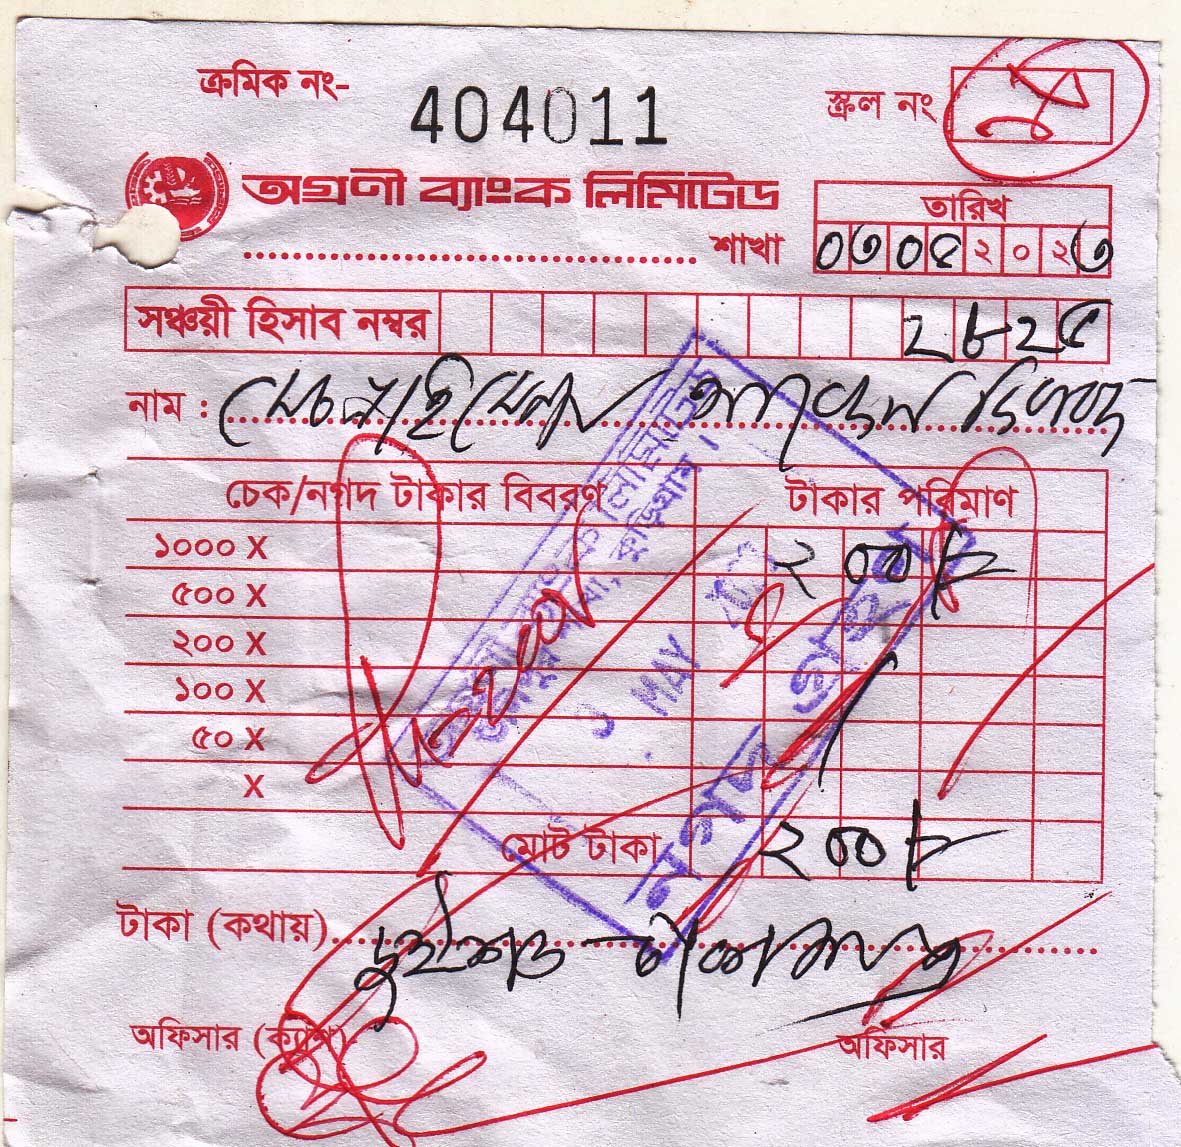 ক্রমিক নং- 404011 স্ক্রল নং
অগ্রণী ব্যাংক লিমিটেড
তারিখ
শাখা ০৩০৫২০২৩
সঞ্চয়ী হিসাব নম্বর ২৮২৫
নাম :
চেক/নগদ টাকার বিবরণ টাকার পরিমাণ
১০০০ X ২০০/-
৫০০ X
২০০ X
১০০ X
৫০ X
X
মোট টাকা ২০০/-
টাকা (কথায়) দুইশত টাকা মাত্র
অফিসার (ক্যাশ) অফিসার
MAY
নগদ গ্রহণ